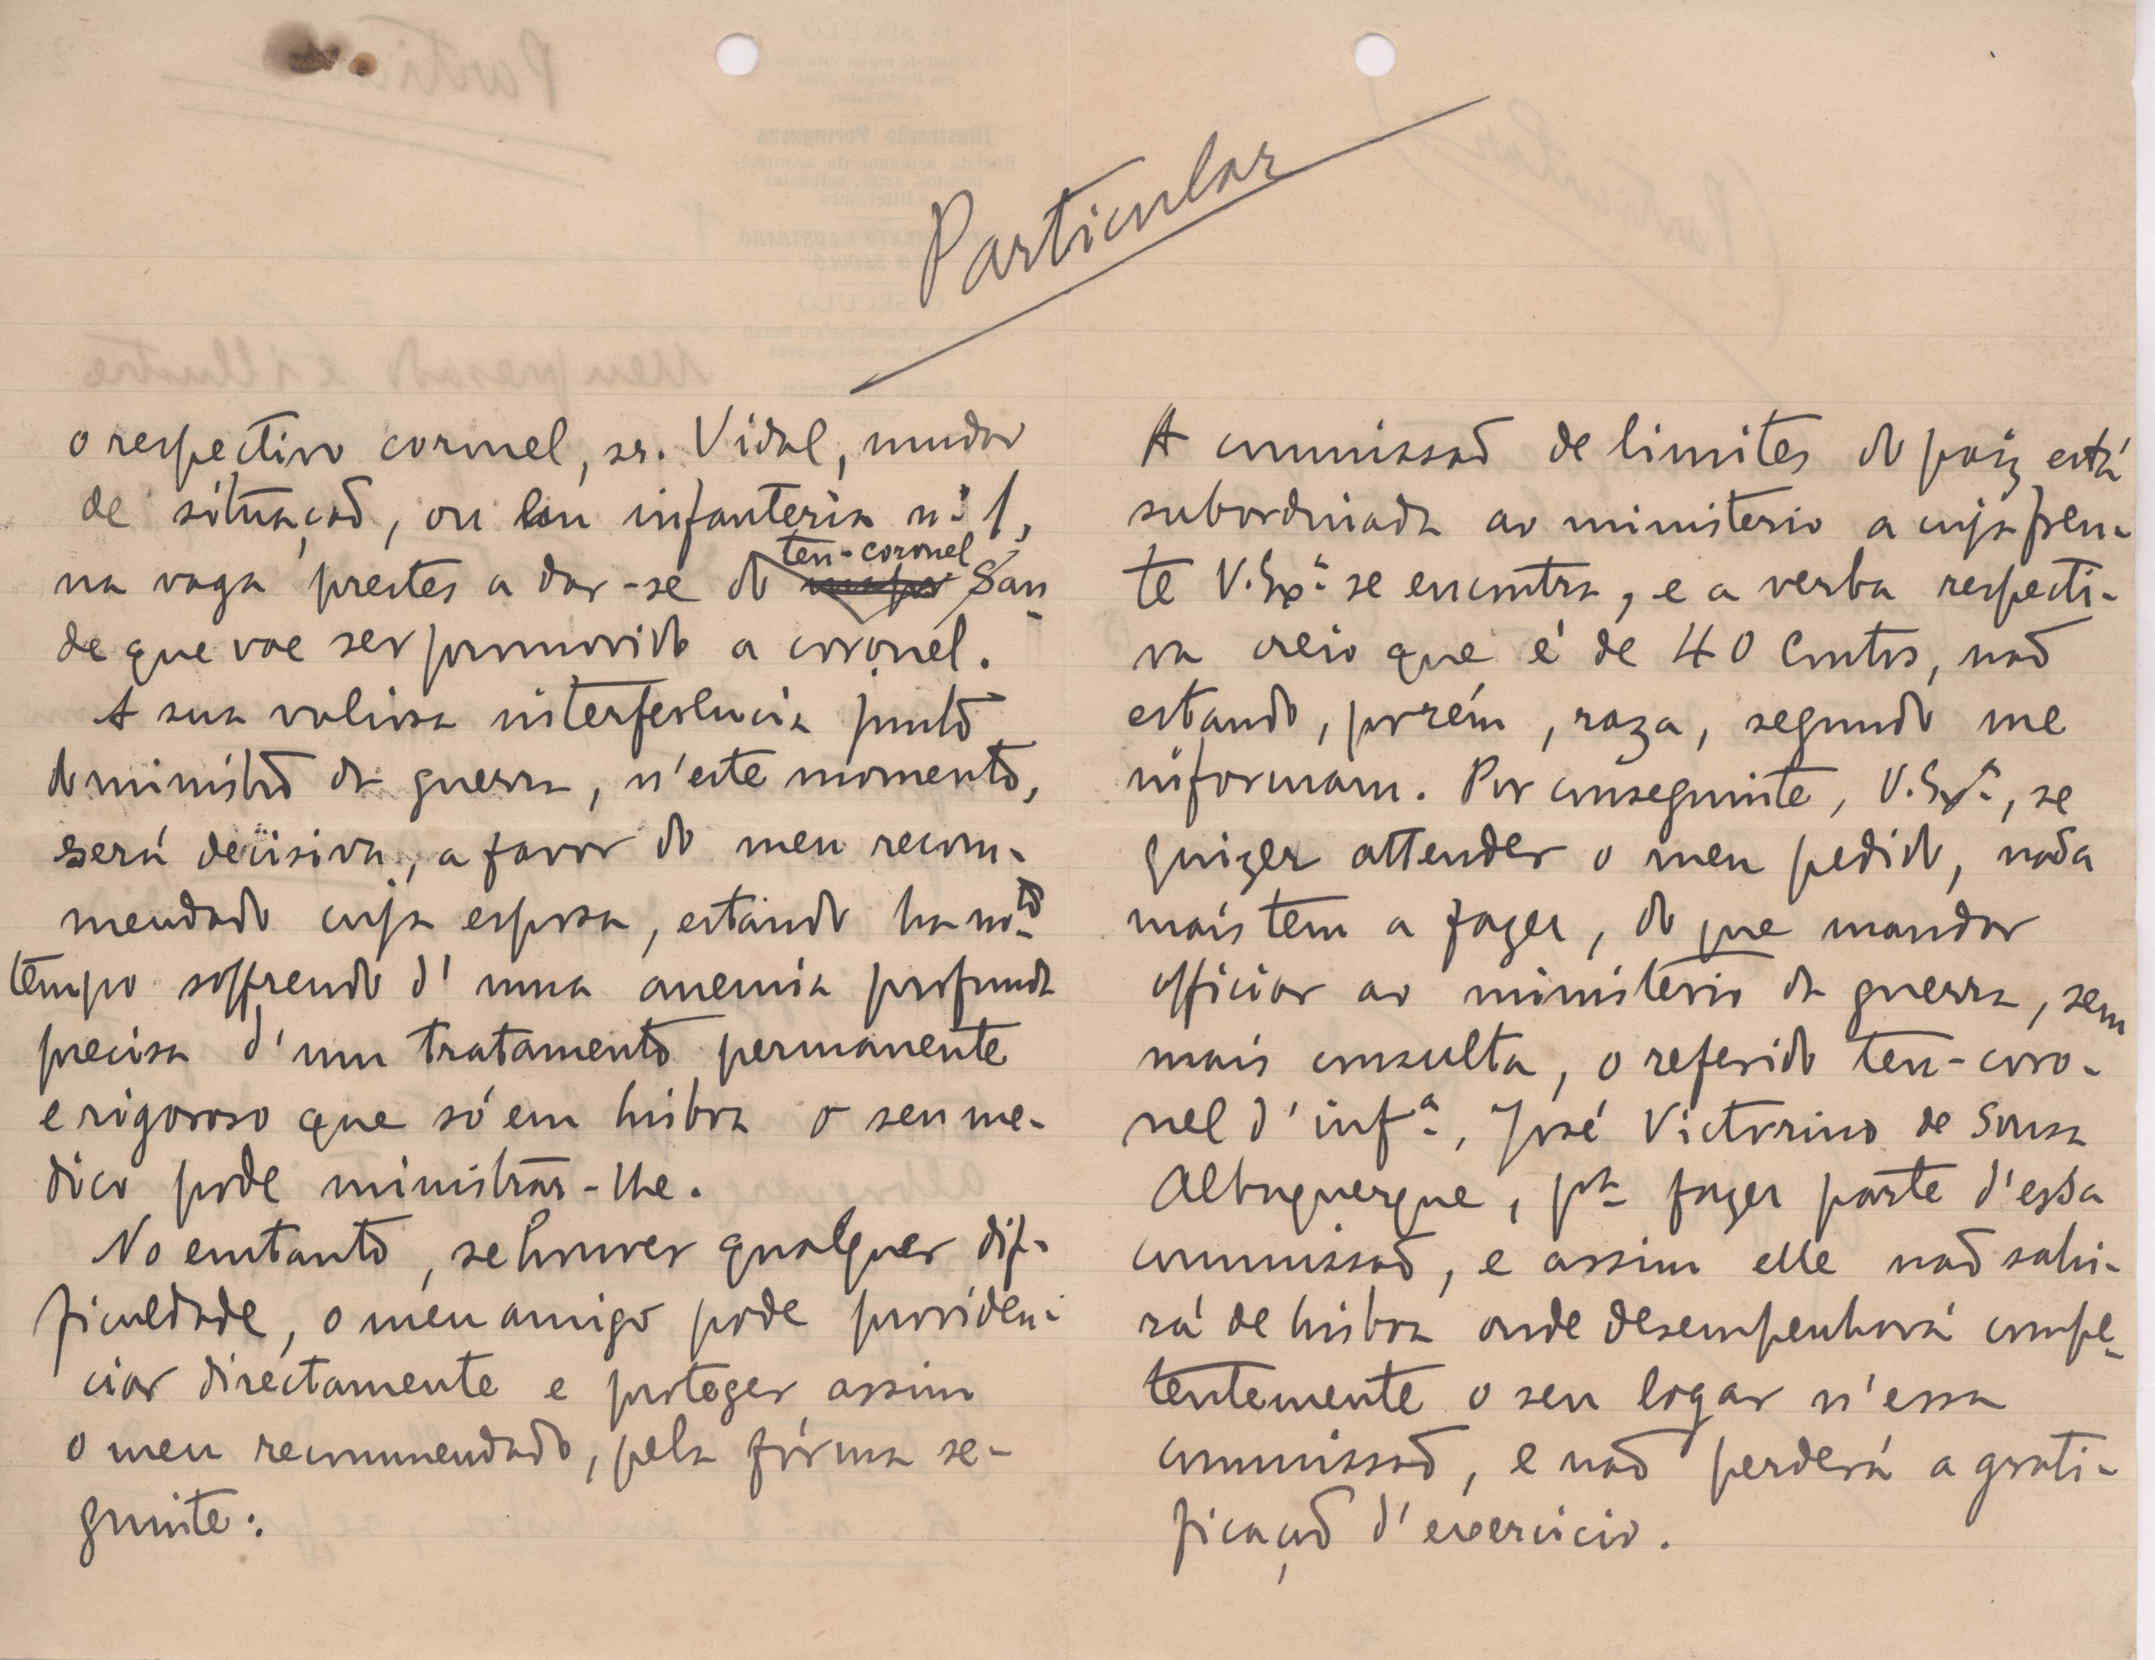 Particular
o respectivo coronel, sr. Vidal, mudar
de situação, ou em infanteria n.º 1,
na vaga prestes a dar-se do ten-coronel San-
de que vae ser promovido a coronel.
A sua valiosa interferencia junto
do ministro da guerra, n'este momento,
será decisiva, a favor do meu recom-
mendado cuja esposa, estando ha m.to
tempo soffrendo d'uma anemia profunda
precisa d'um tratamento permanente
e rigoroso que só em Lisboa o seu me-
dico pode ministrar-lhe.
No emtanto, se houver qualquer dif-
ficuldade, o meu amigo pode providen-
ciar directamente e proteger assim
o meu recommendado, pela fórma se-
guinte:
A commissão de limites do paiz está
subordinada ao ministerio a cuja fren-
te V. Ex.ª se encontra, e a verba respecti-
va creio que é de 40 Contos, não
estando, porém, raza, segundo me
informam. Por conseguinte, V. Ex.ª, se
quizer attender o meu pedido, nada
mais tem a fazer, do que mandar
officiar ao ministerio da guerra, sem
mais consulta, o referido ten-coro-
nel d'inf.ª, José Victorino de Sousa
Albuquerque, p.ª fazer parte d'essa
commissão, e assim elle não sahi-
rá de Lisboa onde desempenhará compe-
tentemente o seu logar n'essa
commissão, e não perderá a grati-
ficação d'exercicio.